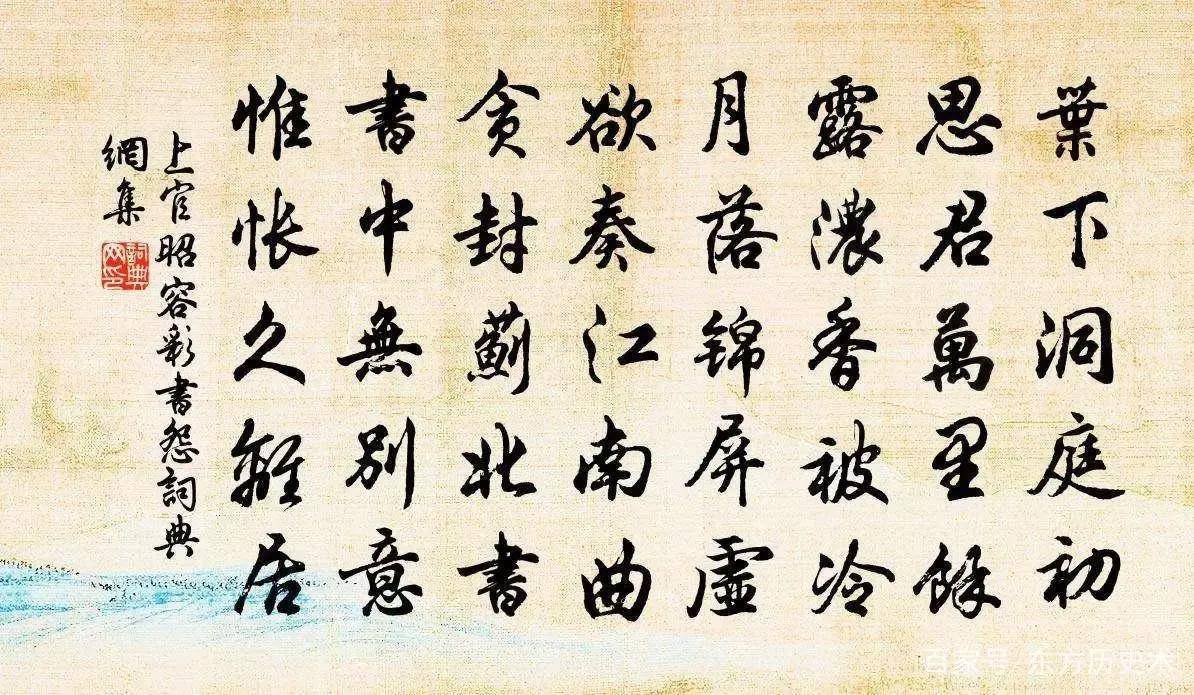 葉下洞庭初
思君萬里餘
露濃香被冷
月落錦屏虛
欲奏江南曲
貪封薊北書
書中無別意
惟悵久離居
上官昭容彩書怨詞典
網集
詞典網印
百家号/东方历史木